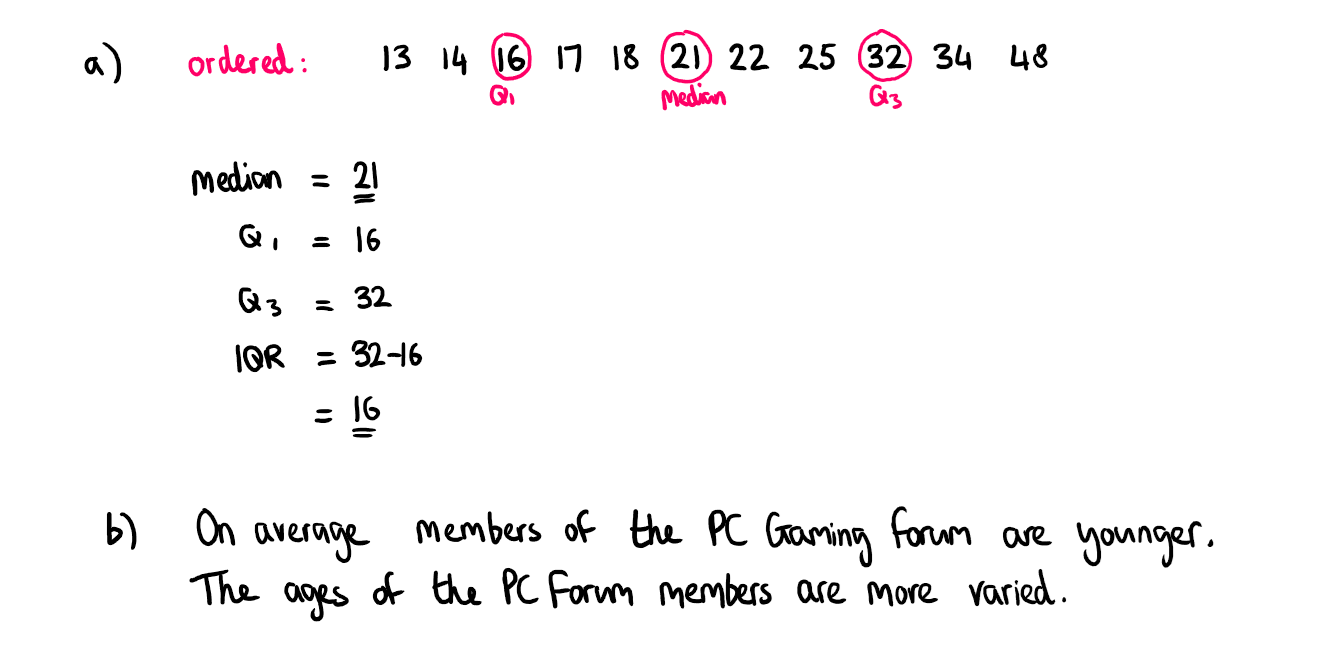 a) ordered: 13 14 16 17 18 21 22 25 32 34 48
Q1 Median Q3
Median = 21
Q1 = 16
Q3 = 32
IQR = 32-16
= 16
b) On average members of the PC Gaming Forum are younger.
The ages of the PC Forum members are more varied.